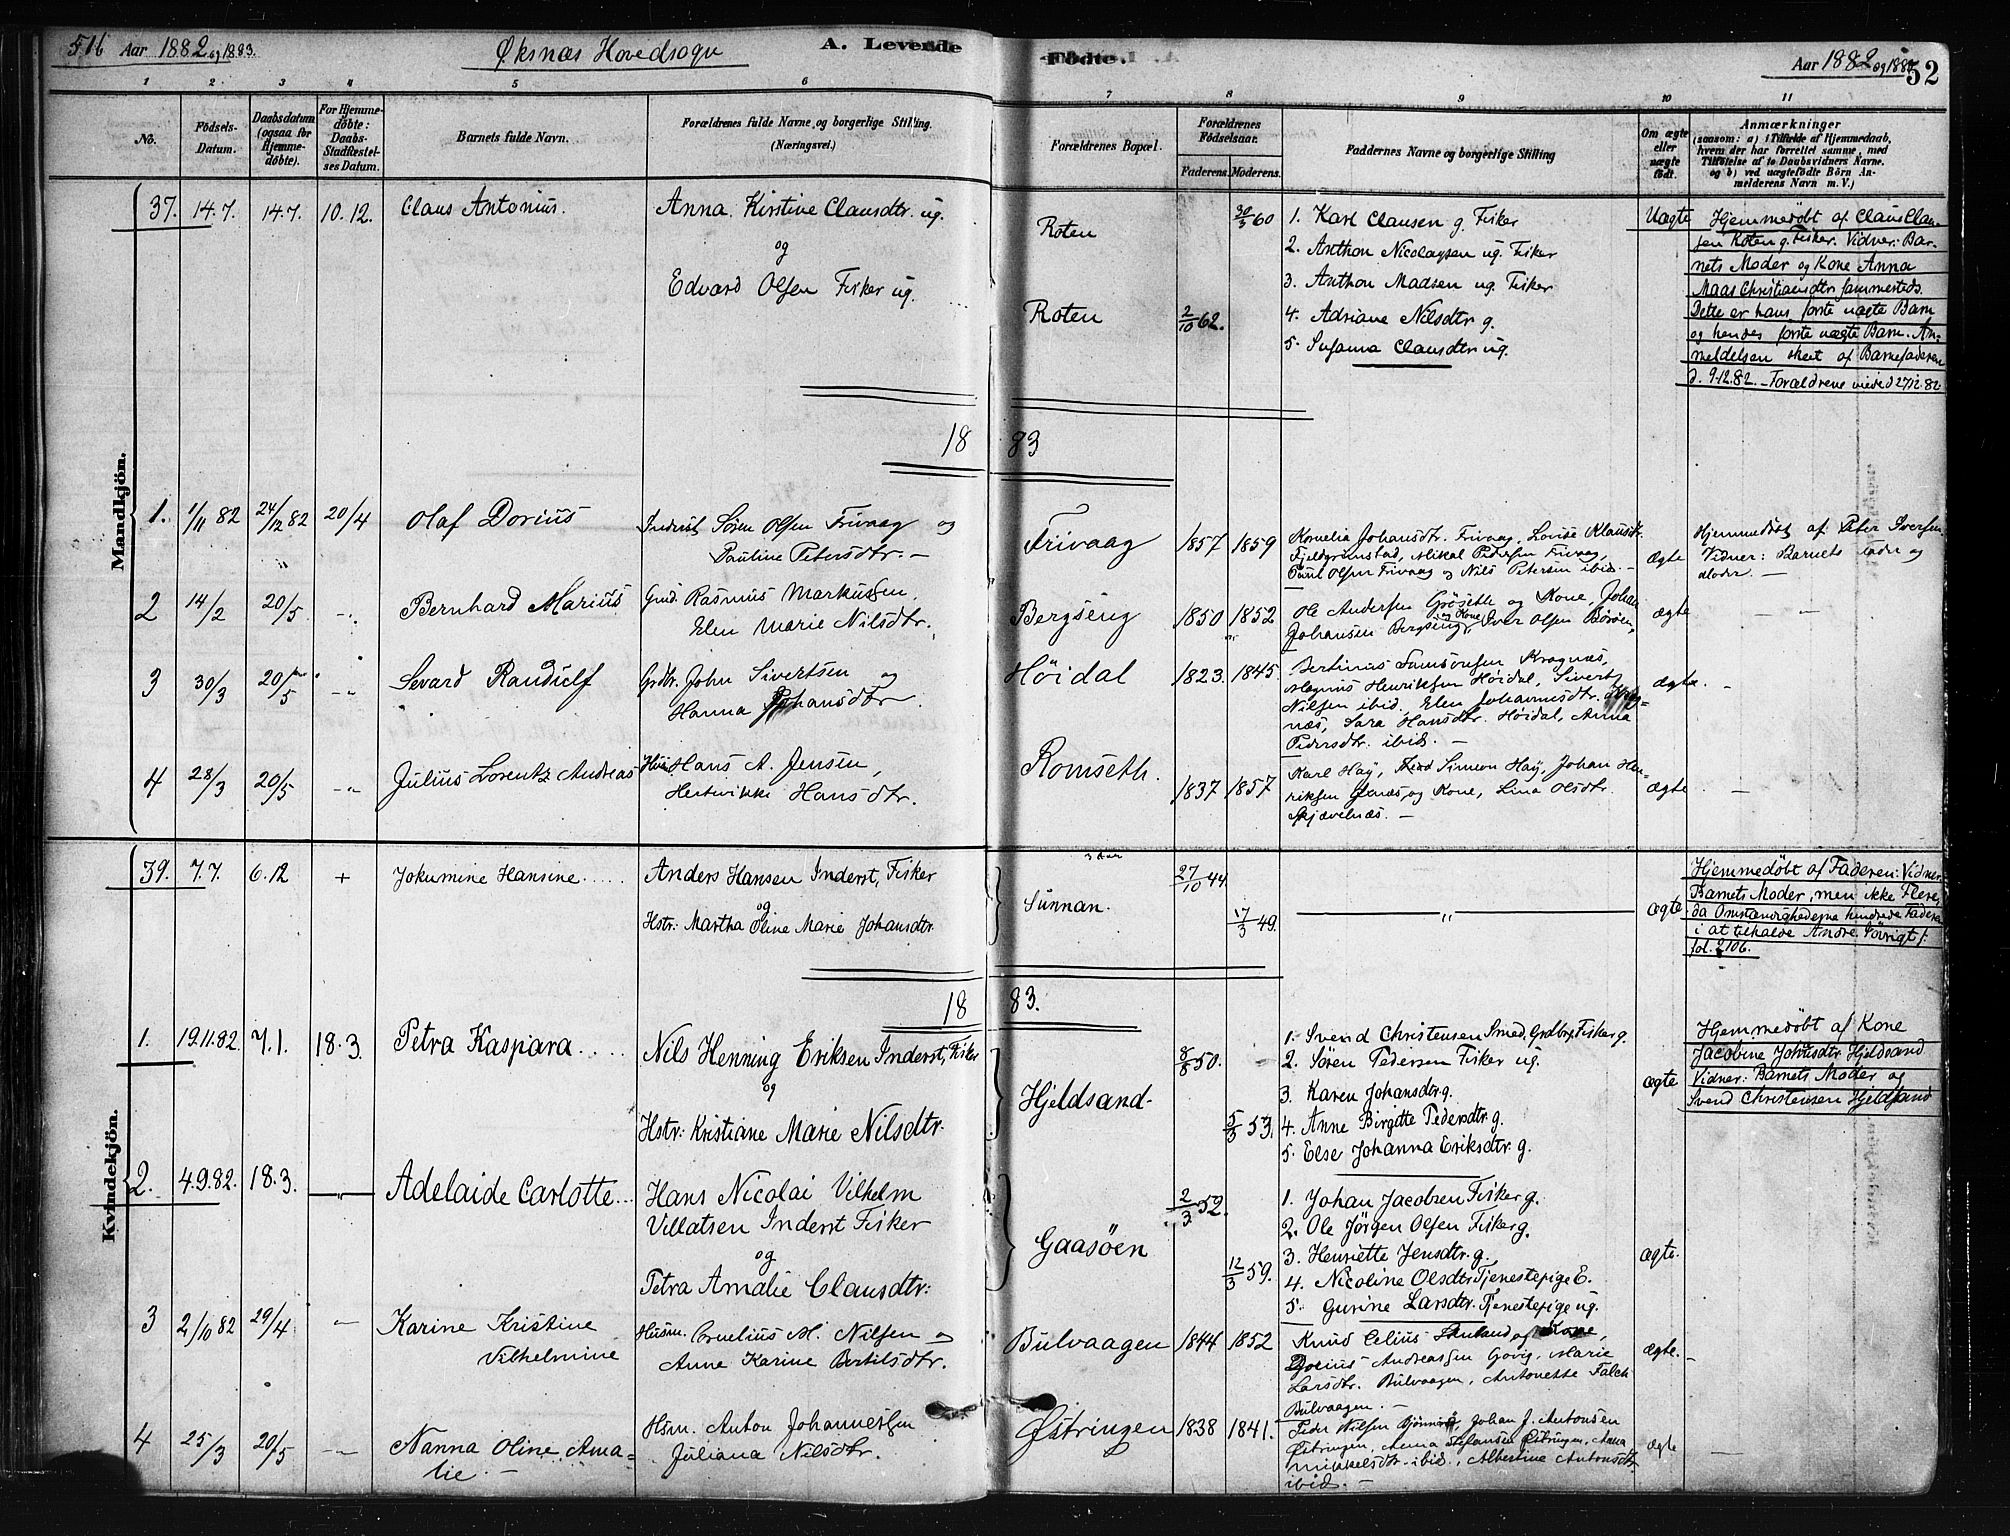 516 Aar 1882 og 1883.
Øksnæs Hovedsogn
A. Levende
Fødte.
Aar 1882 og 188
52
1 2 3 4 5 6 7 8 9 10 11
No.
Födsels-
Datum.
Daabsdatum
(ogsaa for
Hjemme-
døbte).
For Hjemme-
døbte:
Daabs-
Stadfæstel-
ses Datum.
Barnets fulde Navn.
Forældrenes fulde Navne og borgerlige Stilling.
(Næringsvei.)
Forældrenes Bopæl.
Forældrenes
Födselsaar.
Faderens. Moderens.
Faddernes Navne og borgerlige Stilling
Om ægte
eller
uægte
født.
Anmærkninger
(saasom: a) i Tilfælde af Hjemmedaab,
hvem der har forrettet samme, med
Tilføielse af to Daabsvidners Navne.
og b) ved uægtefødte Börn An-
melderens Navn m. V.)
Mandkjön.
37. 14.7. 14.7. 10.12. Claus Antonius.
Anna Kirstine Clausdtr. ug.
og
Edvard Olsen Fisker ug.
Roten
Roten
30/5 60
2/10 62.
1. Karl Clausen g. Fisker
2. Anthon Nicolaysen ug. Fisker
3. Anthon Madsen ug. Fisker
4. Adriane Nilsdtr g.
5. Susanna Clausdtr ug.
Uægte
Hjemmedøbt af Claus Clau-
sen Roten g. Fisker. Vidner: Bar-
nets Moder og Kone Anna
Maas Christiansdtr sammesteds.
Dette er hans første uægte Barn
og hendes første uægte Barn. An-
meldelsen skeet af Barnefaderen
d. 9.12.82. - Forældrene viede d 27/12.82.
18 83
1. 1/11 82 24/12 82 20/4 Olaf Dorius
Inderst Søren Olsen Frivaag og
Pauline Petersdtr. -
Frivaag 1857 1859
Kornelia Johansdtr. Frivaag, Lovise Klausdtr.
Fjeldgrimstad, Mikal Pedersen Frivaag,
Paul Olsen Frivaag og Nils Petersen ibid. -
ægte
Hjemmedøbt af Peter Iversen
Vidner: Barnets Fader og
Moder. -
2 14/2 20/5 -"- Bernhard Marius
Grd. Rasmus Markussen,
Elen Marie Nilsdtr.
Bergseng 1850 1852
Ole Andersen Grøseth og Kone, Johan
Johansen Bergseng og Kone, Iver Olsen Børøen,
ægte - " -
3 30/3 20/5 -"- Sevard Randulf
Grdbr. John Sivertsen og
Hanna Johansdtr.
Høidal 1823. 1845.
Bertinus Samsonsen Kragnæs,
Magnus Henriksen Høidal, Sivert
Nilsen ibid. Elen Johannesdtr. Krag-
næs, Sara Hansdtr. Høidal, Anna
Pedersdtr. ibid. -
ægte. -
4 28/3 20/5 -"- Julius Lorentz Andreas
Hans A. Jensen,
Hertvikke Hansdtr.
Romseth. 1837 1857
Karl Haÿ, Simeon Haÿ, Johan Hen-
riksen og Kone, Lina Olsdtr.
Skjævelnæs. -
ægte -
Kvindekjön.
39. 7.7. 6.12 + Jokumine Hansine.....
Anders Hansen Inderst, Fisker
og
Hstr: Martha Oline Marie Johansdtr.
Sünnan.
27/10 44.
17/3 49.
"
ægte
Hjemmedøbt af Faderen: Vidner
Barnets Moder, men ikke Flere,
da Omstændighederne hindrede Faderen
i at tilkalde Andre. Iøvrigt f:
fol. 2106.
18 83.
1. 19.11.82. 7.1. 18.3. Petra Kaspara.....
Nils Henning Eriksen Inderst, Fisker
og
Hstr: Kristiane Marie Nilsdtr.
Hjeldsand-
8/8 50.
5/5 53.
1. Svend Christensen Smed, Grdbr, Fisker g.
2. Søren Pedersen Fisker ug.
3. Karen Johansdtr g.
4. Anne Birgitte Pedersdtr g.
5. Else Johanna Eriksdtr g.
ægte
Hjemmedøbt af Kone
Jacobine Johnsdtr Hjeldsand
Vidner: Barnets Moder og
Svend Christensen Hjeldsand
2. 4.9.82. 18.3. -"- Adelaide Carlotte...
Hans Nicolai Vilhelm
Villatsen Inderst Fisker
og
Petra Amalie Clausdtr:
Gaasöen
2/3 52.
12/3 59.
1. Johan Jacobsen Fisker g.
2. Ole Jørgen Olsen Fisker g.
3. Henriette Jensdtr. g.
4. Nicoline Olsdtr Tjenestepige E.
5. Gurine Larsdtr. Tjenestepige ug.
ægte.
3 2/10 82 29/4 -"- Karine Kristine
Vilhelmine
Husm. Cornelius M. Nilsen og
Anne Karine Bertilsdtr.
Bülvaagen 1844 1852
Knud Celius og Kone,
Dorius Andreassen Govig, Marie
Larsdtr. Bülvaagen, Antonette Falch
Bülvaagen. -
ægte. -
4 25/3 20/5 -"- Nanna Oline Ama-
lie. -
Hsm. Anton Johannessen
Juliana Nilsdtr.
Østringen 1838 1841.
Peder Nilsen Johan J. Antonsen
Østringen, Anna Østringen, Anna
Mikkelsdtr. ibid, Albertine Antonsdtr.
ibid. -
ægte -